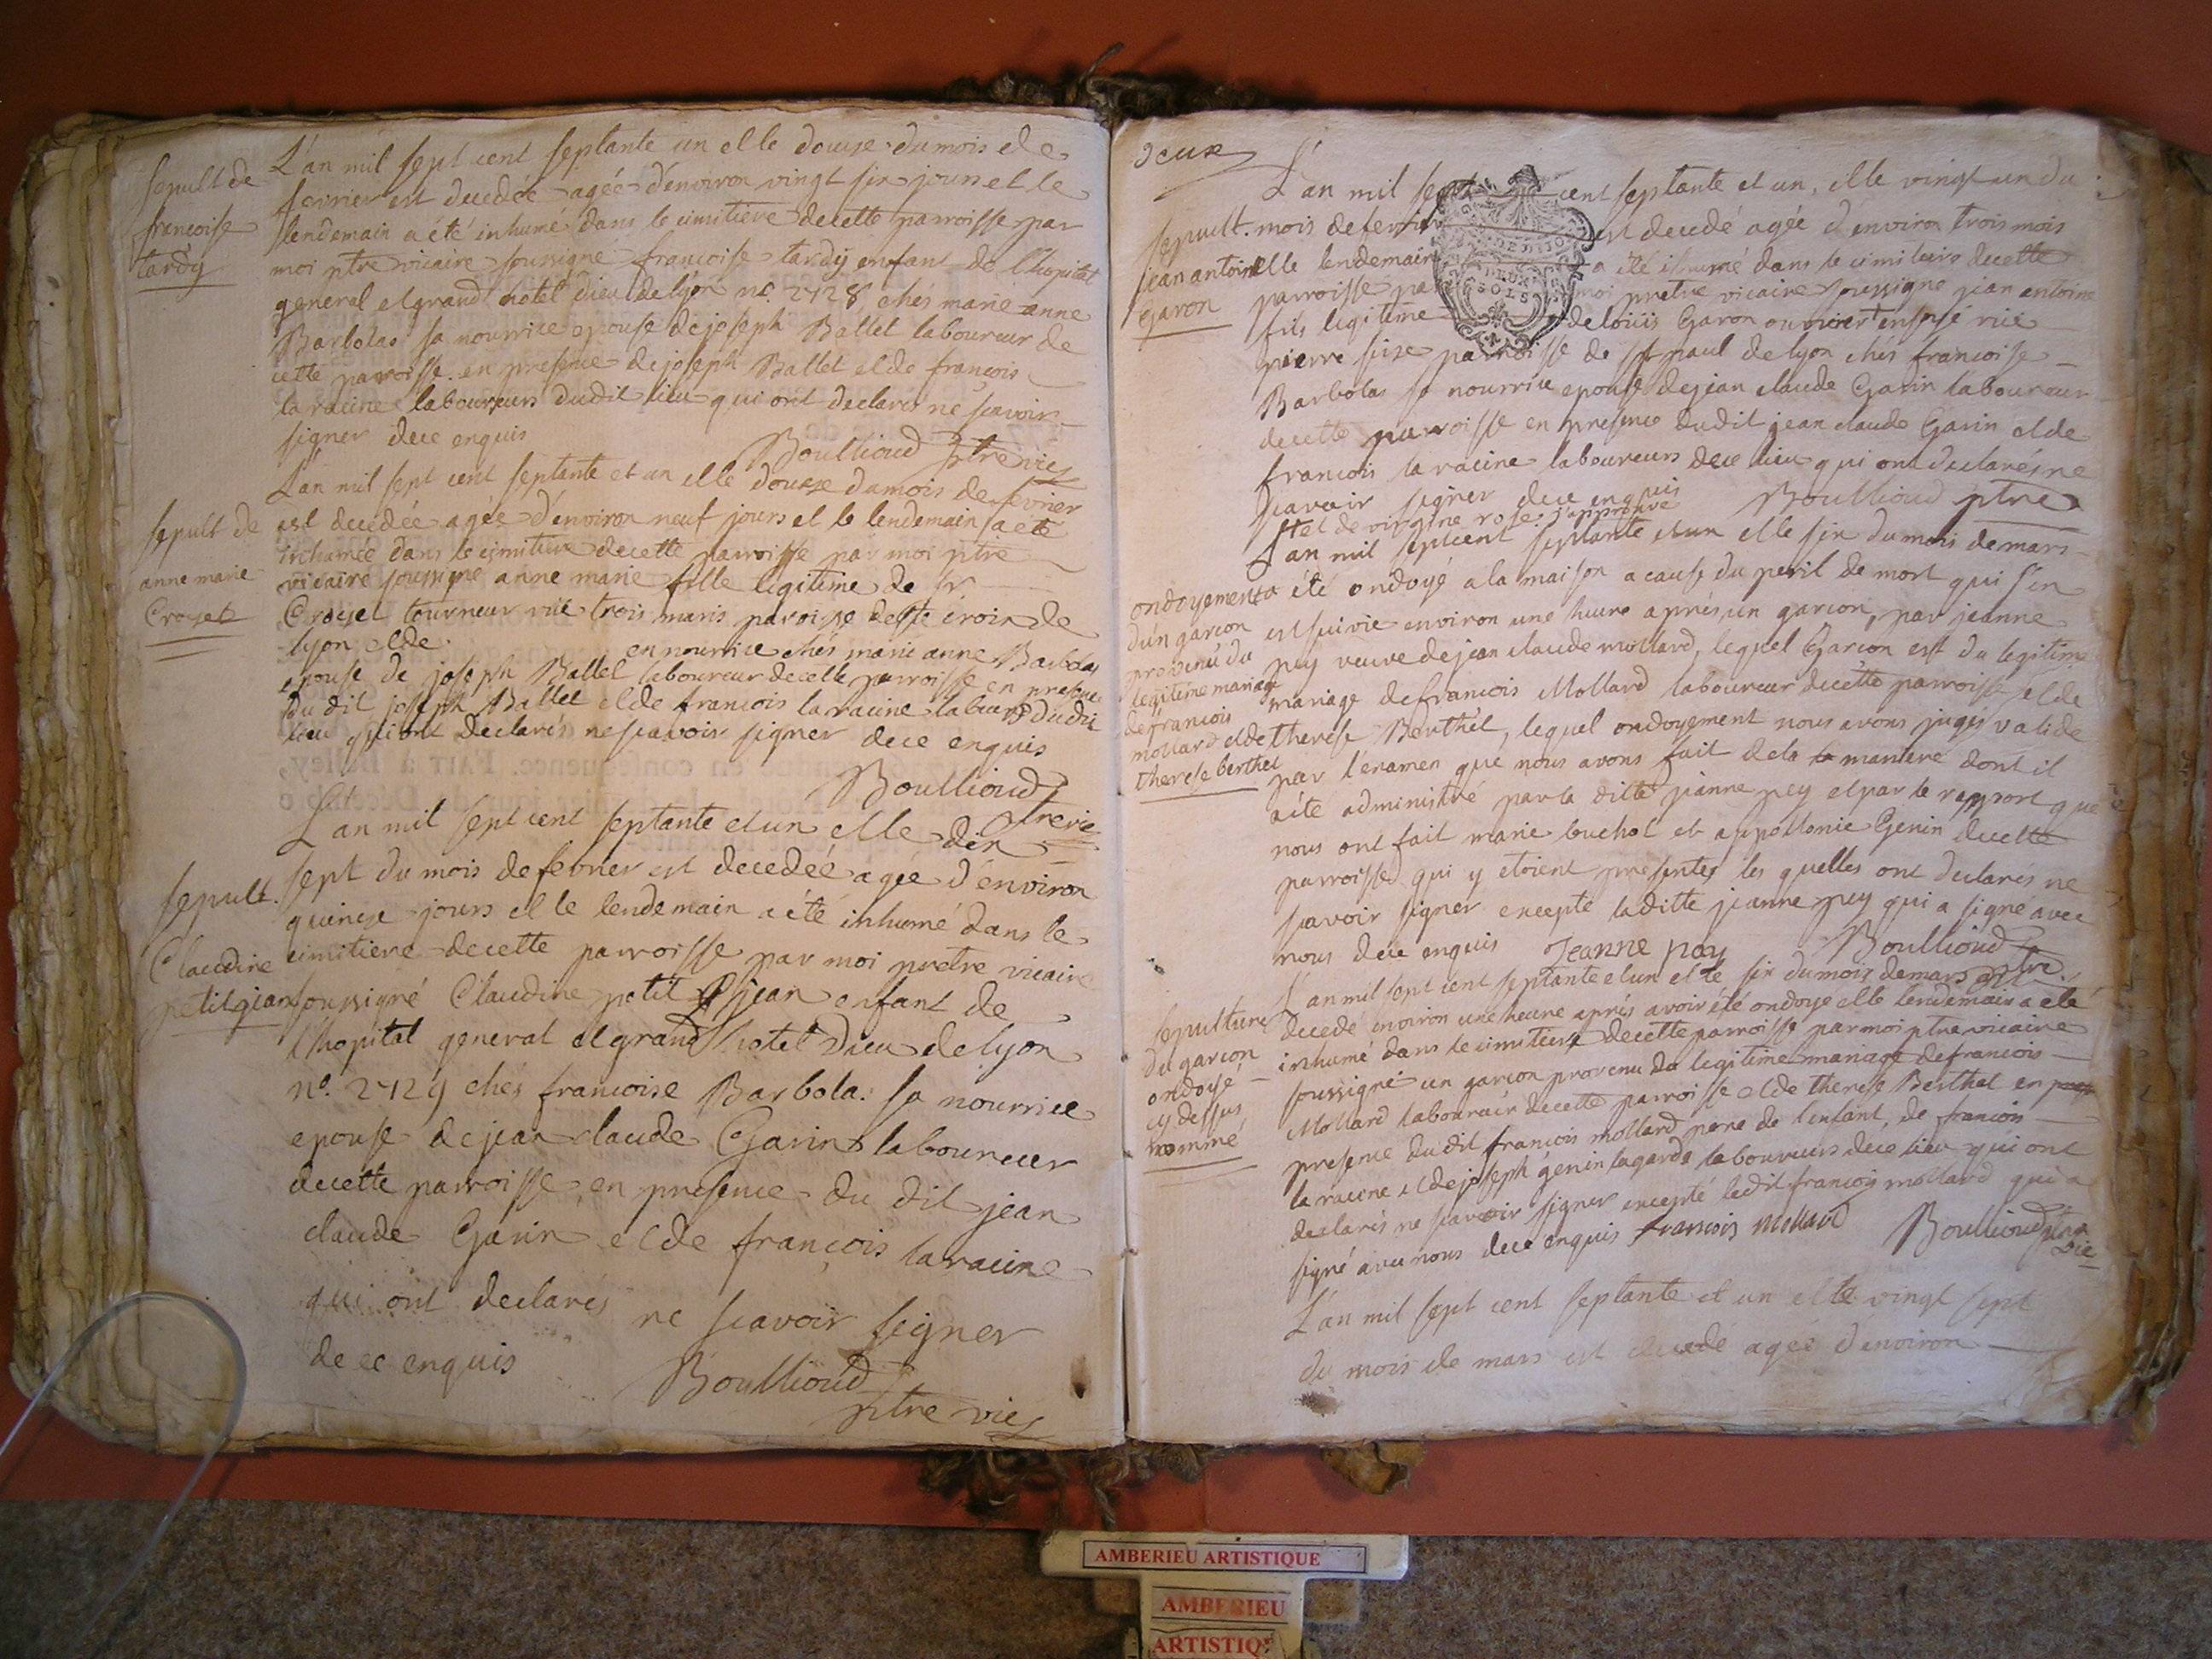 L'an mil sept cent septante un et le douse du mois de
sepult de
francoise
tardy
fevrier est decedée agée d'environ vingt six jours et le
lendemain a été inhumé dans le cimitiere de cette parroisse par
moi ptre vicaire soussigné francoise tardy enfant de l'hopital
general et grand hotel Dieu de lyon n°. 2428 chés marie anne
Barbolas sa nourrice epouse de joseph Ballet laboureur de
cette parroisse en presence de joseph Ballet et de françois
la racine laboureurs dudit lieu qui ont declarés ne scavoir
signer de ce enquis
Boullioud ptre vic
L'an mil sept cent septante et un et le douze du mois de fevrier
sepult de
anne marie
Croset
est decedée agée d'environ neuf jours et le lendemain a été
inhumée dans le cimitiere de cette parroisse par moi ptre
vicaire soussigné anne marie fille legitime de Sr
Croset tourneur rüe trois maris paroisse de Ste croix de
lyon et de en nourrice chés marie anne Barbolas
epouse de joseph Ballet laboureur de cette parroisse en presence
du dit joseph Ballet et de francois la racine labours dudit
lieu qui ont declarés ne scavoir signer de ce enquis
Boullioud
ptre vic
L'an mil sept cent septante et un et le dix
sepult.
Claudine
petit jean
sept du mois de fevrier est decedée agée d'environ
quinse jours et le lendemain a été inhumé dans le
cimitiere de cette parroisse par moi pretre vicaire
soussigné Claudine petit jean enfant de
l'hopital general et grand hotel Dieu de lyon
n°. 2429 chés francoise Barbola. sa nourrice
epouse de jean claude Garin laboureur
de cette parroisse en presence du dit jean
claude Garin et de françois la racine
qui ont declarés ne scavoir signer
de ce enquis
Boullioud
ptre vic
deux
L'an mil sept cent septante et un, et le vingt un du
sepult.
jean antoine
Garon
mois de fevrier est decedé agée d'environ trois mois
et le lendemain a été inhumé dans le cimitiere de cette
parroisse par moi pretre vicaire soussigné jean antoine
fils legitime de loüis Garon ouvrier en soye rüe
pierre scise parroisse de st paul de lyon chés francoise
Barbolas sa nourrice epouse de jean claude Garin laboureur
de cette parroisse en presence dudit jean claude Garin et de
francois la racine laboureurs de ce lieu qui ont declarés ne
scavoir signer de ce enquis Boullioud ptre
et de virgine rose j'approuve
L'an mil sept cent septante et un et le six du mois de mars
ondoyement
d'un garcon
provenu du
legitime mariage
de francois
mollard et de
therese berthet
a été ondoyé a la maison a cause du peril de mort qui s'en
est suivie environ une heure aprés, un garcon, par jeanne
pey veuve de jean claude mollard, lequel Garcon est du legitime
mariage de francois Mollard laboureur de cette parroisse et de
therese Berthet, lequel ondoyement nous avons jugés valide
par l'examen que nous avons fait de la maniere dont il
a été administré par la ditte jeanne pey et par le rapport que
nous ont fait marie buchot et appollonie Genin de cette
parroisse qui y etoient presentes les quelles ont declarés ne
scavoir signer excepté laditte jeanne pey qui a signé avec
nous de ce enquis Jeanne pay Boullioud ptre
L'an mil sept cent septante et un et le six du mois de mars est
sepulture
du garcon
ondoyé
cy dessus
nommé
decedé environ une heure aprés avoir été ondoyé et le lendemain a été
inhumé dans le cimitiere de cette parroisse par moi ptre vicaire
soussigné un garcon provenu du legitime mariage de francois
Mollard laboureur de cette parroisse et de therese Berthet en
presence dudit francois mollard pere de l'enfant, de francois
la racine et de joseph genin lagarde laboureurs de ce lieu qui ont
declarés ne scavoir signer excepté ledit francois mollard qui a
signé avec nous de ce enquis francois mollard Boullioud ptre
vic
L'an mil sept cent septante et un et le vingt sept
du mois de mars est decedé agée d'environ
AMBERIEU ARTISTIQUE
AMBERIEU
ARTISTIQ